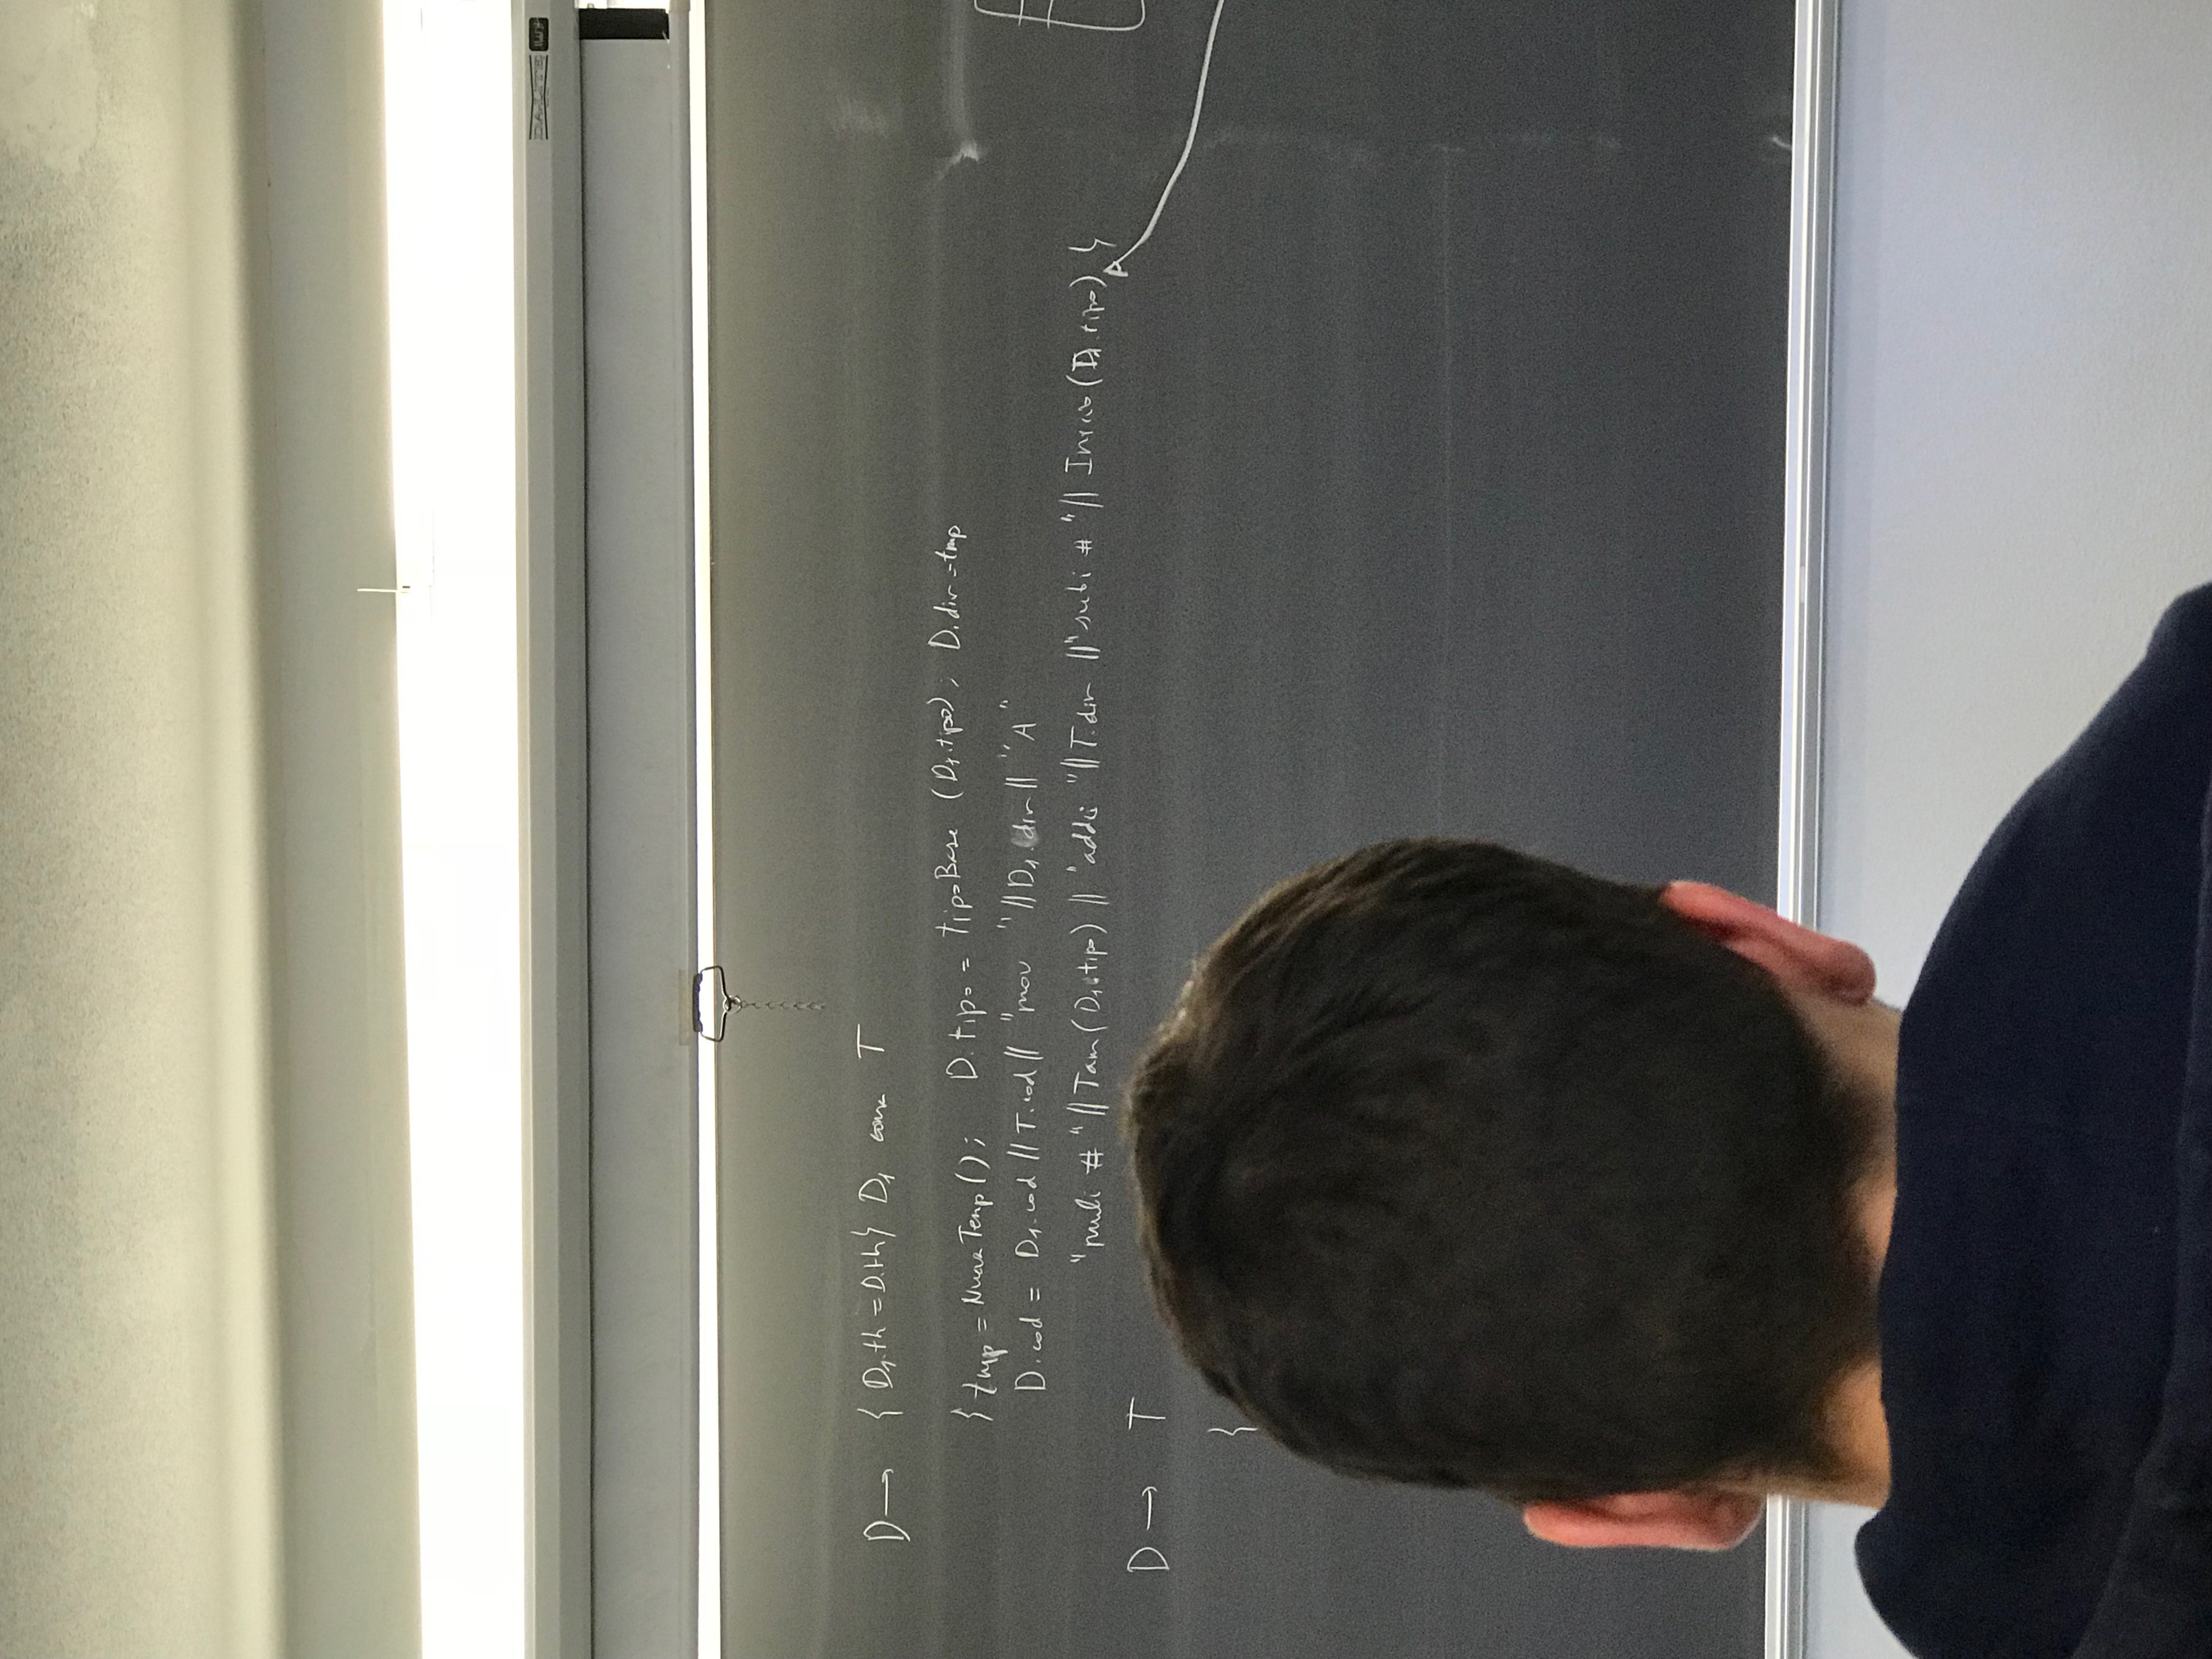 DA-LITE
D → { D₁.th = D.th } D₁ coma T
{ tmp = NuevaTemp(); D.tipo = tipoBase (D₁.tipo); D.dir = tmp
D.cod = D₁.cod || T.cod || "mov " || D₁.dir || " A"
"muli # " || Tam(D₁.tipo) || "addi " || T.dir || "subi # " || Inicio(D₁.tipo) }
D → T
{